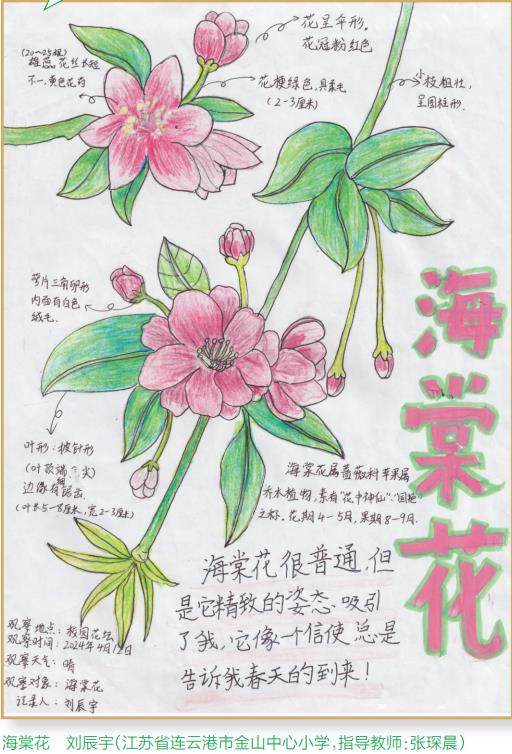 花呈伞形。
花冠粉红色
(20~25根)
雄蕊花丝长短
不一，黄色花药
花梗绿色，具柔毛
(2-3厘米)
小枝粗壮，
呈圆柱形.
萼片三角卵形
内面有白色
绒毛.
海棠花
叶形：披针形
(叶顶端尖)
边缘有锯齿
(叶长5-8厘米，宽2-3厘米)
海棠花属蔷薇科苹果属
乔木植物，素有“花中神仙”、“国艳”
之称。花期4-5月，果期8-9月.
海棠花很普通，但
是它精致的姿态吸引
了我，它像一个信使，总是
告诉我春天的到来！
观察地点：校园花坛
观察时间：2024年4月12日
观察天气：晴
观察对象：海棠花
记录人：刘辰宇
海棠花 刘辰宇(江苏省连云港市金山中心小学,指导教师:张琛晨)